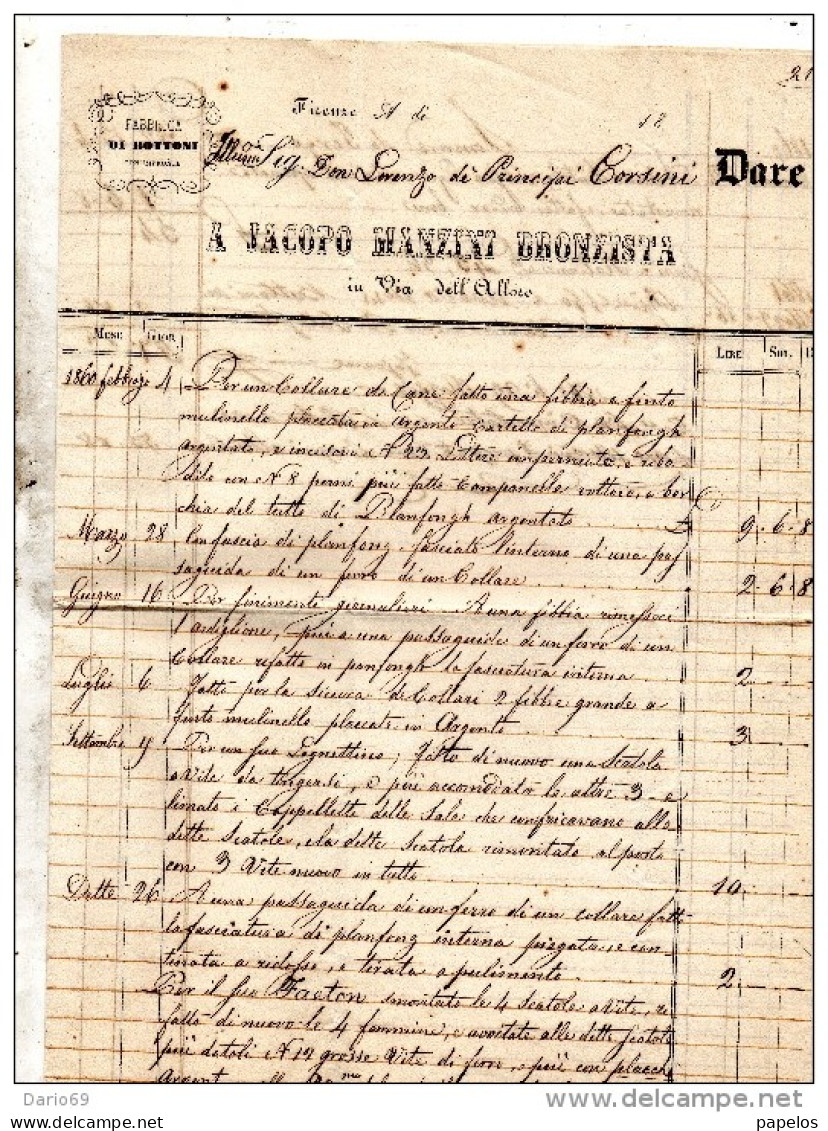 21
FABBRICA
DI BOTTONI
Firenze A dì 18
Illmo Sig. Don Lorenzo de Principi Corsini Dare
A JACOPO MANZINI BRONZISTA
in Via dell'Alloro
Mese Gior. Lire Sol.
1860 febbrajo 4 Per un Collare da Cane fatto una fibbia a finto
mulinello placcata in argento Cartello di planfongh
argentato, e incisovi N 23 Lettere impernicate, e riba-
dilo con N 8 perni più fatto Campanella voltoio, e bor
chia del tutto di Planfongh argentato £ 9. 6. 8
Marzo 28 Con fascia di planfong fasciato l'interno di una pas
saguida di un ferro di un Collare 2. 6. 8
Giugno 16 Per finimenti giornalieri. A una fibbia rimessoci
1 ardiglione, più a una passaguida di un ferro di un
Collare rifatto in panfongh la fasciatura interna 2 - -
Luglio 6 Fatto per la sicura de Collari 2 fibbie grande a
finto mulinello placcate in Argento 3 - -
Settembre Per un suo Legnettino; fatto di nuovo una Scatola
a Vite da tingersi, e più accomodato le altre 3 - e
limato i Cappellette delle Sale che confricavano alle
dette Scatole, e la detta Scatola rimontata al posto
con 3 Vite nuove in tutto 10 - -
Detto 26 A una passaguida di un ferro di un collare fatto
la fasciatura di planfong interna piegata e con-
tinata a ridosso, e tirata a pulimento 2 - -
Per il suo Faeton smontato le 4 Scatole a Vite, ri
fatto di nuovo le 4 femmine, e avvitate alle dette Scatole
più datoli N 12 grosse Vite di ferro, e più con placche
Argent
Dario69
delcampe.net
papelos